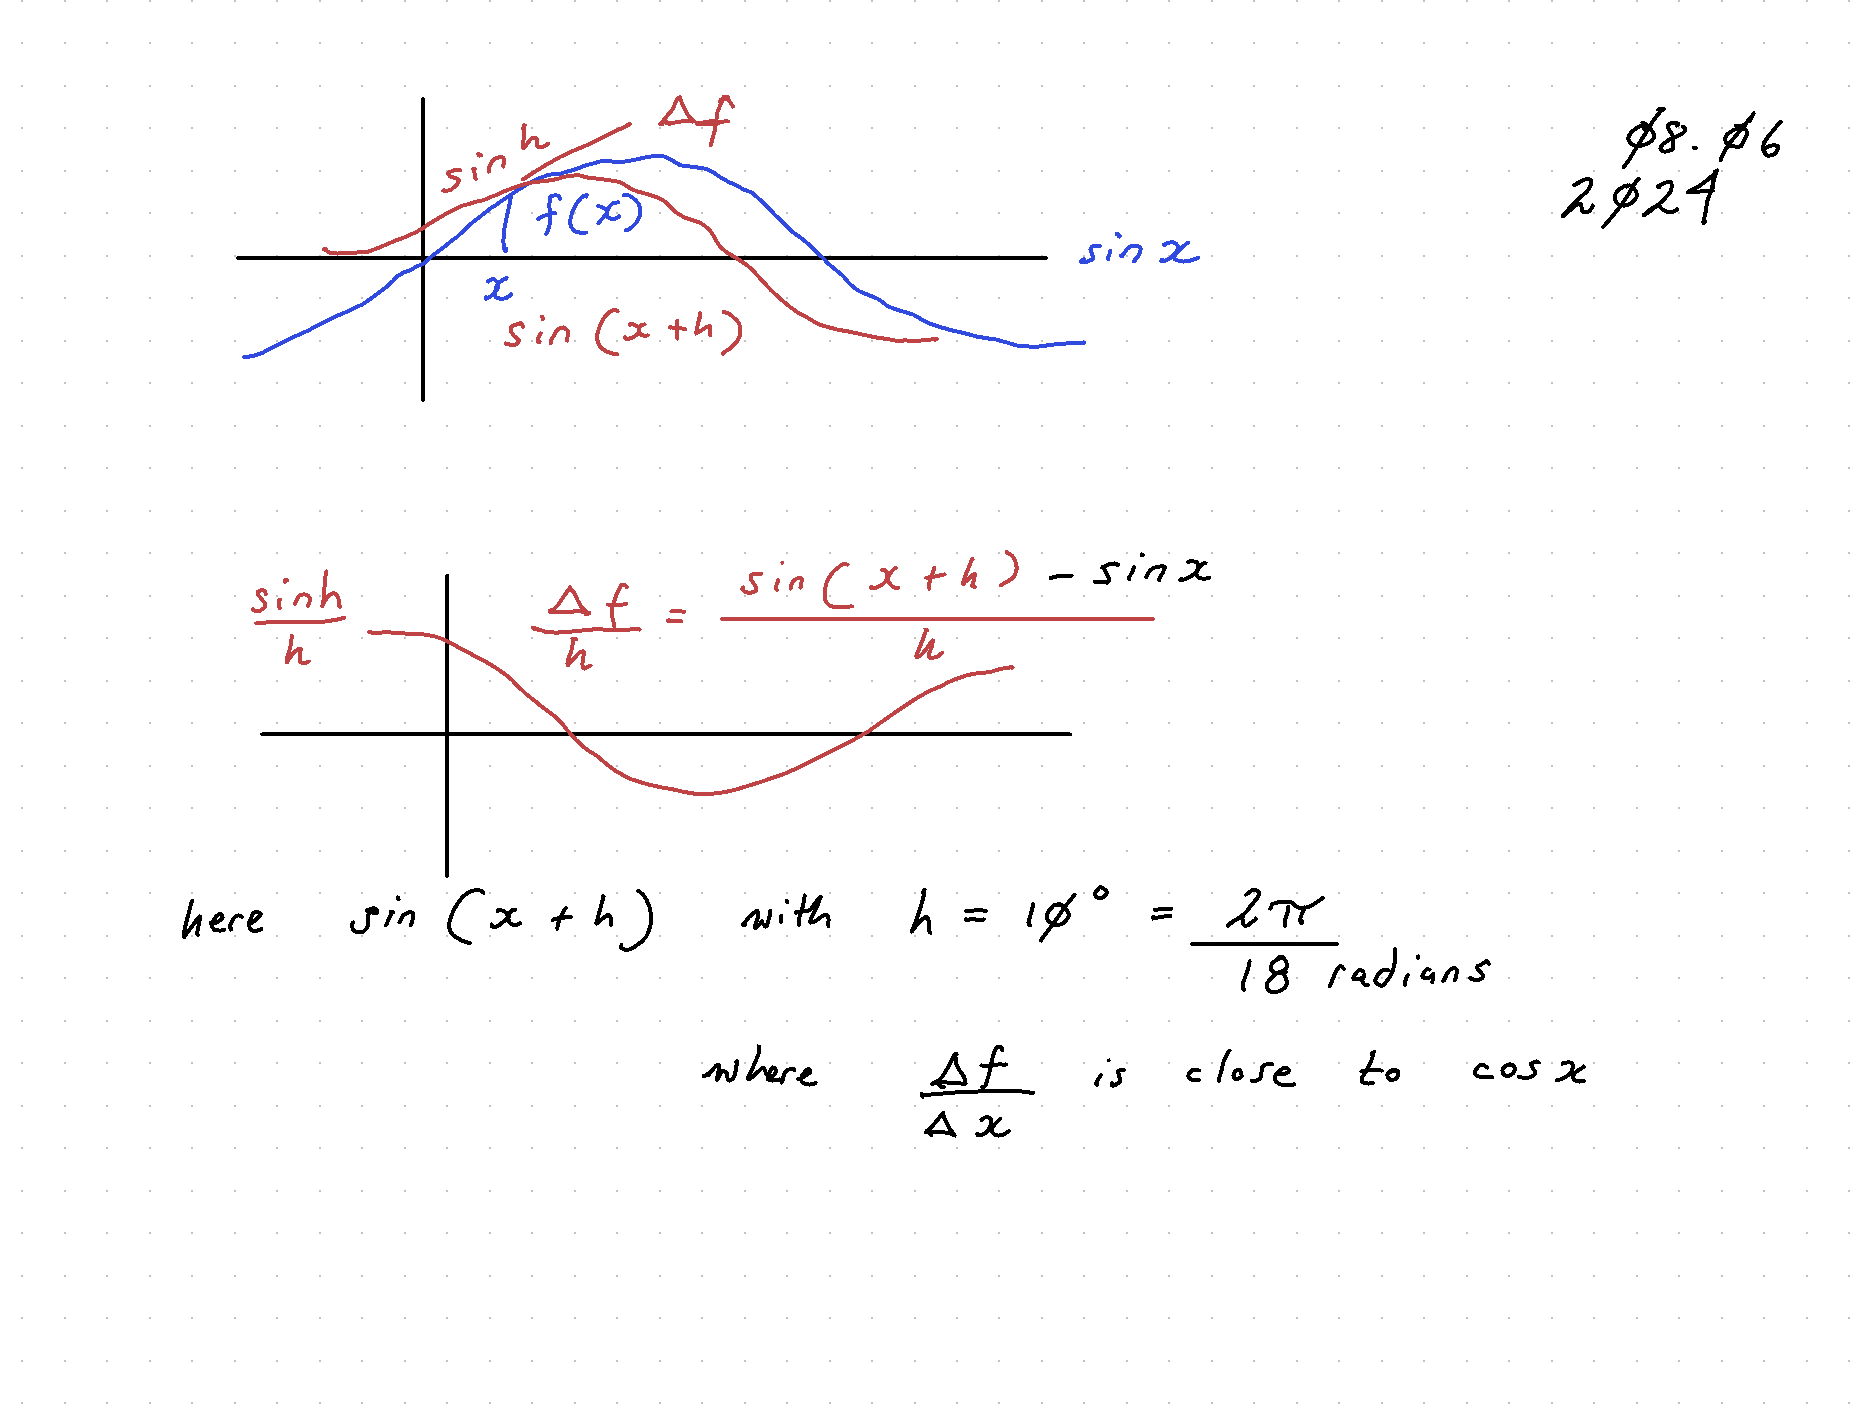 ø8.ø6
2ø24
Δf
sin h
f(x)
sin x
x
sin (x+h)
sin h / h
Δf / h = sin(x+h) - sin x / h
here sin (x+h) with h = 1ø° = 2π / 18 radians
where Δf / Δx is close to cos x